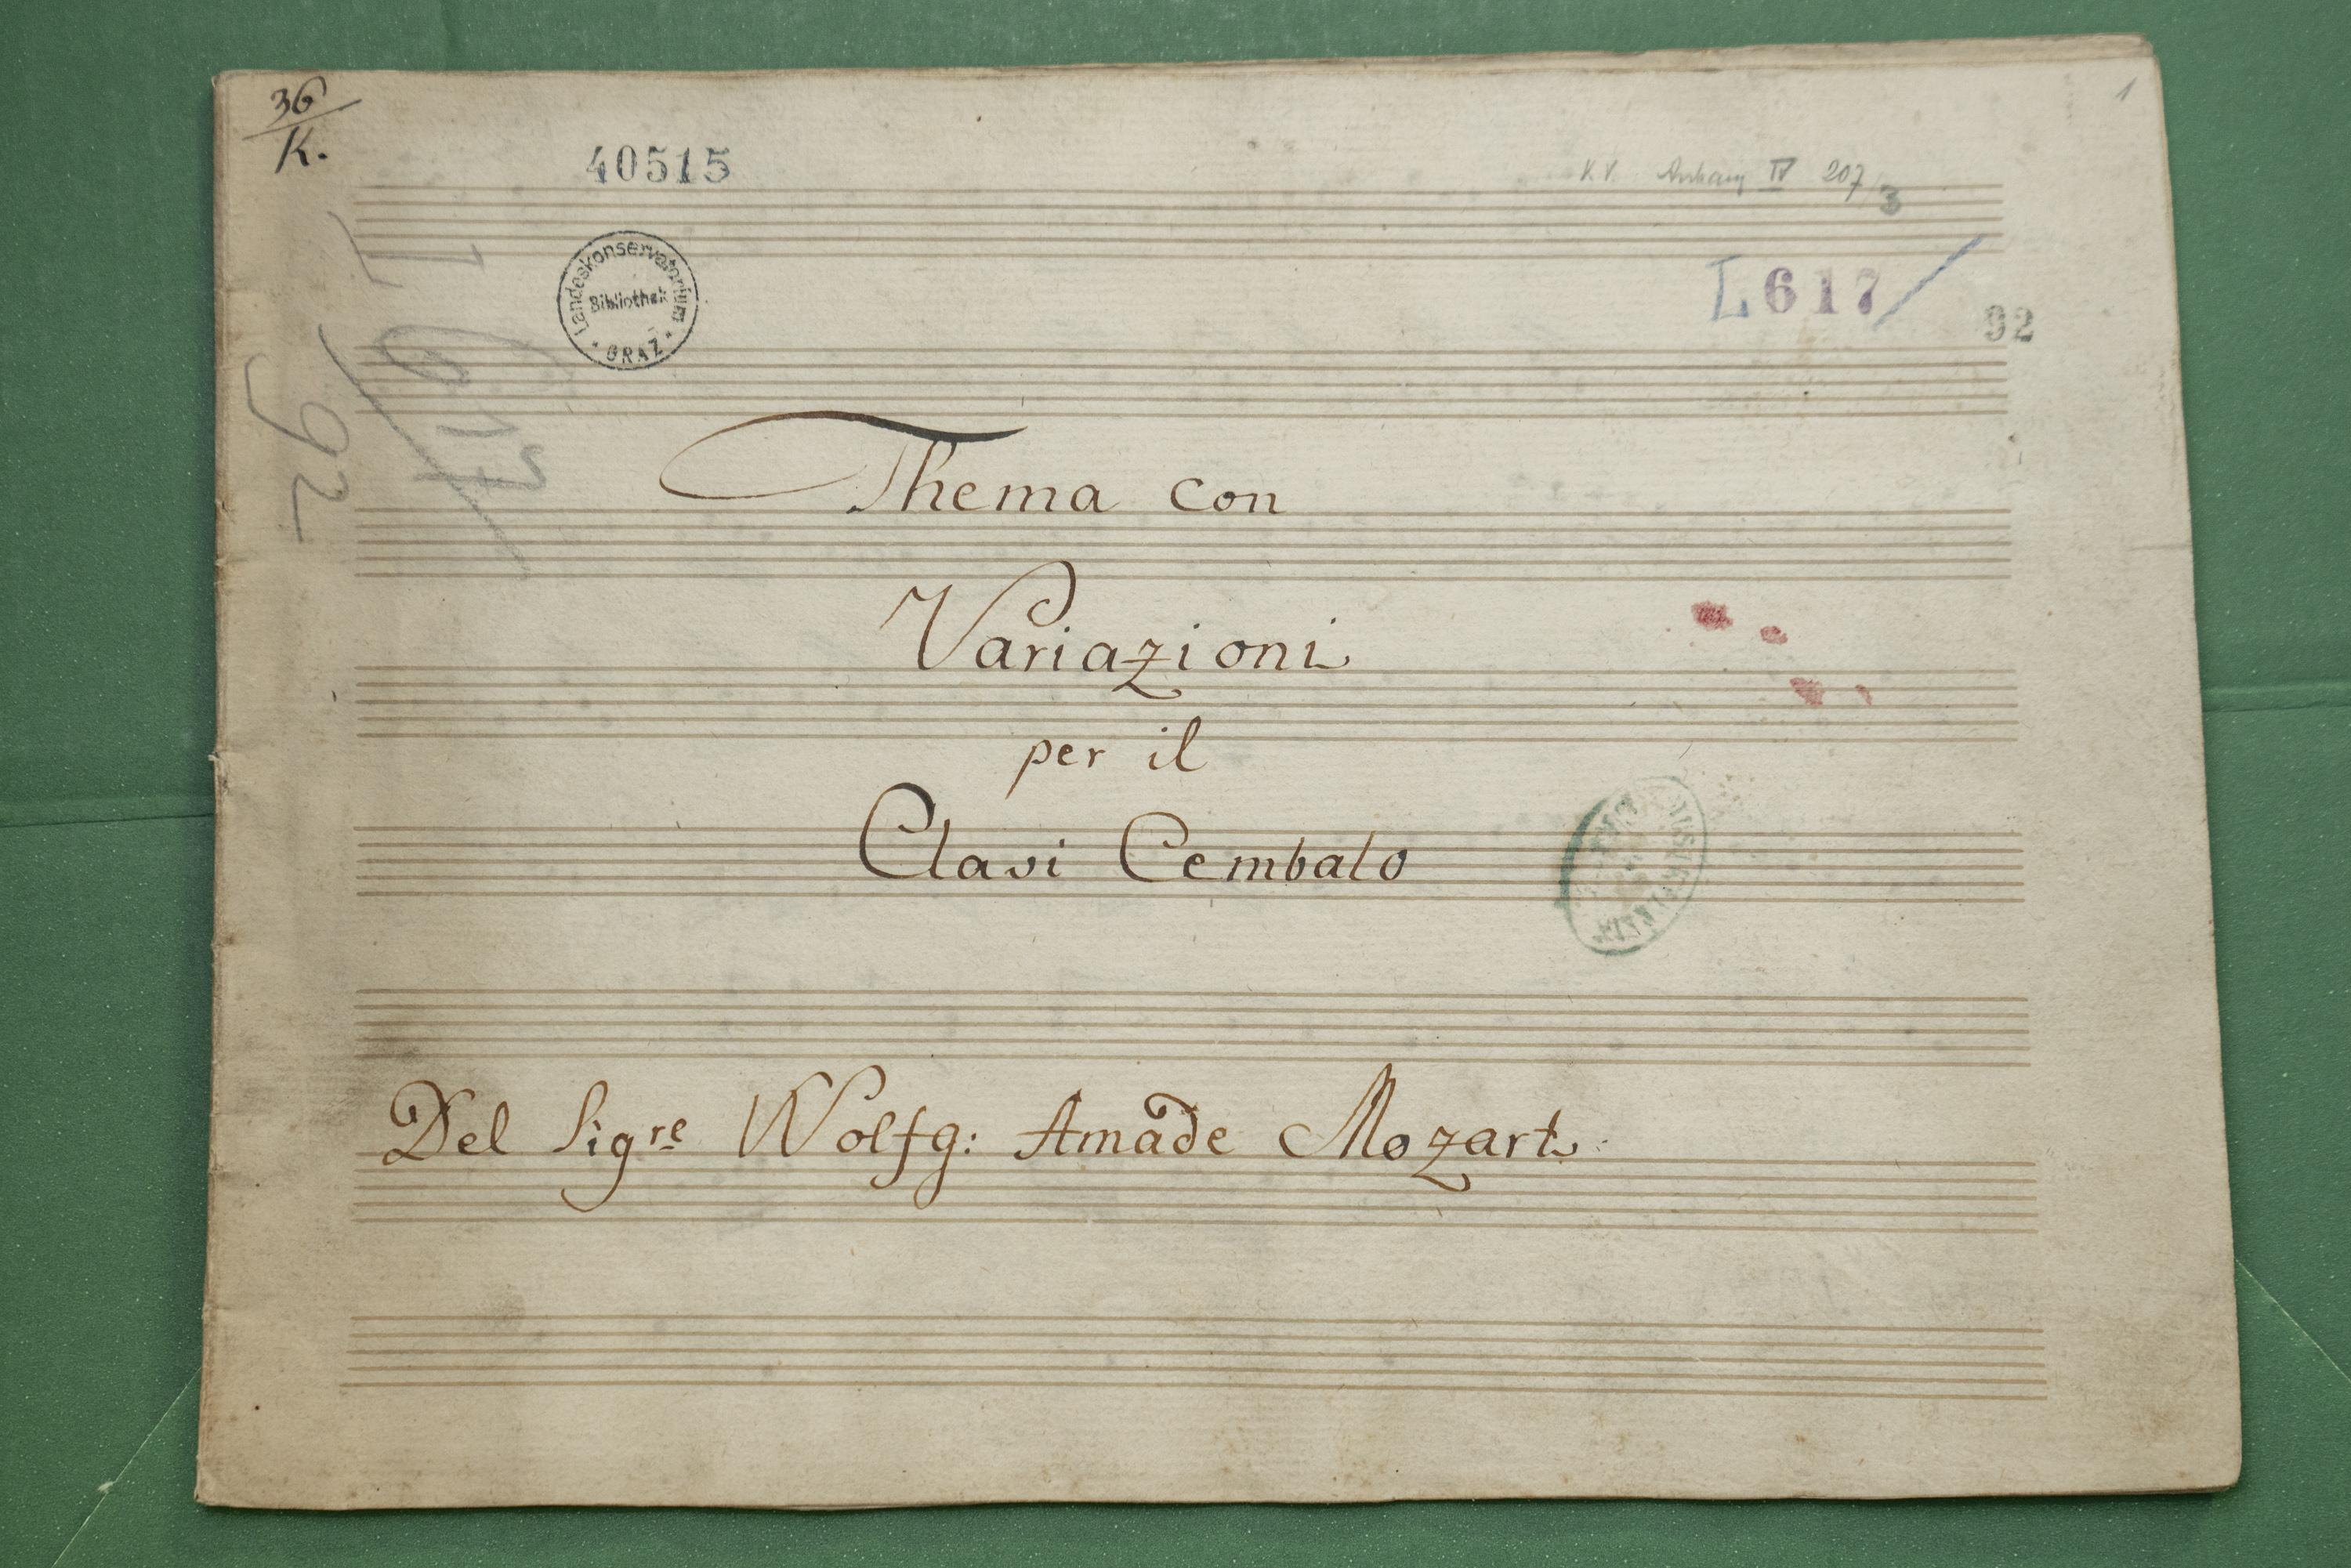 36
K.
1
40515
K.V. Anhang IV 207/3
Landeskonservatorium
Bibliothek
GRAZ
L 617/
92
L 617/
92
Thema con
Variazioni
per il
Clavi Cembalo
Del Sigre Wolfg: Amade Mozart